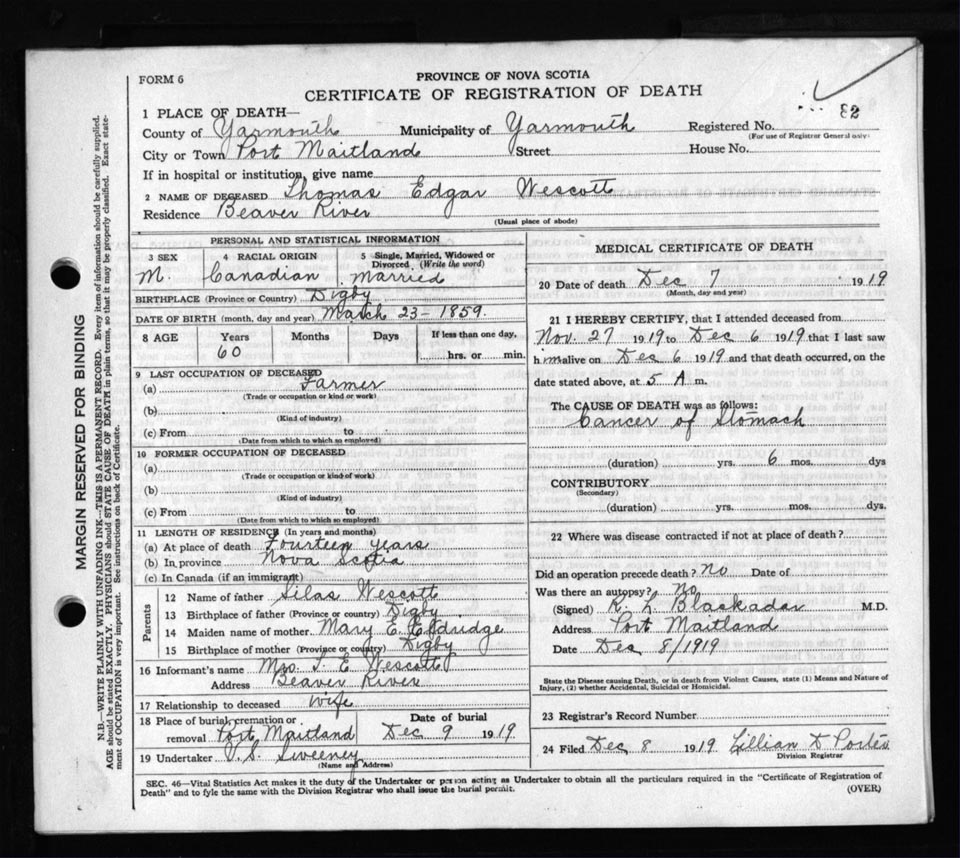 FORM 6
PROVINCE OF NOVA SCOTIA
CERTIFICATE OF REGISTRATION OF DEATH
82
1 PLACE OF DEATH—
County of Yarmouth Municipality of Yarmouth Registered No.
(For use of Registrar General only)
City or Town Port Maitland Street House No.
If in hospital or institution, give name
2 NAME OF DECEASED Thomas Edgar Wescott
Residence Beaver River
(Usual place of abode)
PERSONAL AND STATISTICAL INFORMATION
3 SEX 4 RACIAL ORIGIN 5 Single, Married, Widowed or Divorced (Write the word)
M. Canadian Married
BIRTHPLACE (Province or Country) Digby
DATE OF BIRTH (month, day and year) March 23 - 1859.
8 AGE Years Months Days If less than one day,
60 hrs. or min.
9 LAST OCCUPATION OF DECEASED
(a) Farmer
(Trade or occupation or kind or work)
(b)
(Kind of industry)
(c) From to
(Date from which to which so employed)
10 FORMER OCCUPATION OF DECEASED
(a)
(Trade or occupation or kind of work)
(b)
(Kind of industry)
(c) From to
(Date from which to which so employed)
11 LENGTH OF RESIDENCE (In years and months)
(a) At place of death Fourteen years
(b) In province Nova Scotia
(c) In Canada (if an immigrant)
Parents
12 Name of father Silas Wescott
13 Birthplace of father (Province or country) Digby
14 Maiden name of mother Mary E. Eldridge
15 Birthplace of mother (Province or country) Digby
16 Informant's name Mrs. T. E. Wescott
Address Beaver River
17 Relationship to deceased Wife
18 Place of burial, cremation or removal Port Maitland
Date of burial
Dec 9 1919
19 Undertaker V. S. Sweeney
(Name and Address)
MEDICAL CERTIFICATE OF DEATH
20 Date of death Dec 7 1919
(Month, day and year)
21 I HEREBY CERTIFY, that I attended deceased from
Nov. 27 1919 to Dec 6 1919 that I last saw
him alive on Dec 6 1919 and that death occurred, on the
date stated above, at 5 A m.
The CAUSE OF DEATH was as follows:
Cancer of Stomach
(duration) yrs. 6 mos. dys
CONTRIBUTORY
(Secondary)
(duration) yrs. mos. dys.
22 Where was disease contracted if not at place of death?
Did an operation precede death? No Date of
Was there an autopsy? No
(Signed) R. L. Blackadar M.D.
Address Port Maitland
Date Dec 8/1919
State the Disease causing Death, or in death from Violent Causes, state (1) Means and Nature of
Injury, (2) whether Accidental, Suicidal or Homicidal.
23 Registrar's Record Number
24 Filed Dec 8 1919 Lillian D Porter
Division Registrar
SEC. 46—Vital Statistics Act makes it the duty of the Undertaker or person acting as Undertaker to obtain all the particulars required in the "Certificate of Registration of
Death" and to fyle the same with the Division Registrar who shall issue the burial permit.
(OVER)
MARGIN RESERVED FOR BINDING
N.B.—WRITE PLAINLY WITH UNFADING INK—THIS IS A PERMANENT RECORD. Every item of information should be carefully supplied.
AGE should be stated EXACTLY. PHYSICIANS should STATE CAUSE OF DEATH in plain terms, so that it may be properly classified. Exact state-
ment of OCCUPATION is very important. See instructions on back of Certificate.